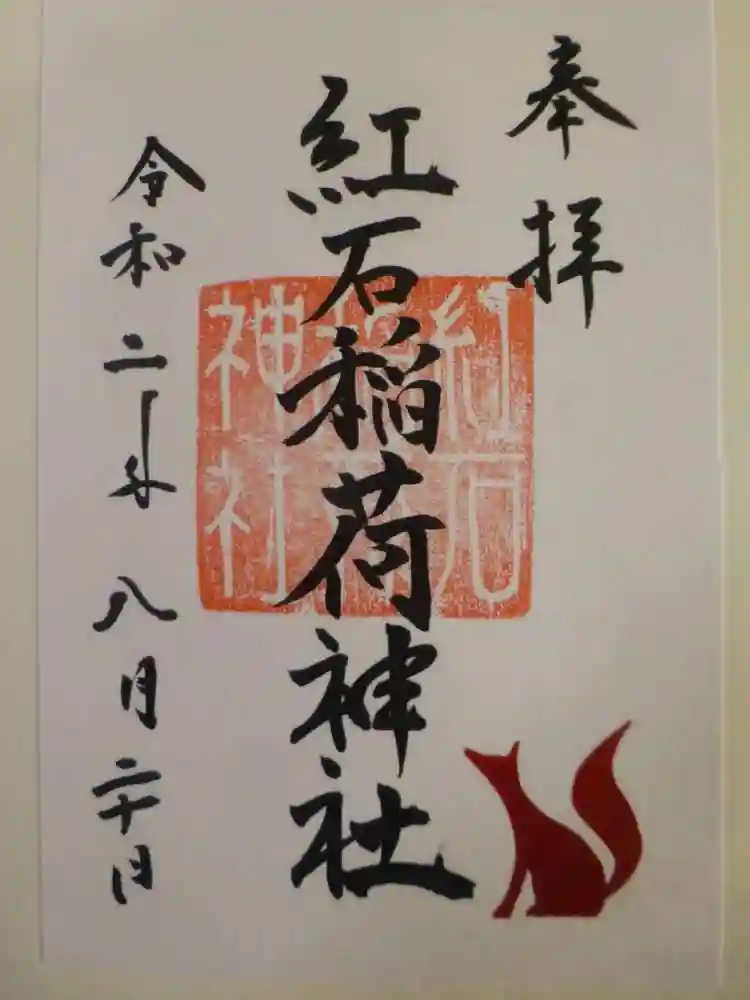 奉拝
紅石稲荷神社
紅石
稲荷
神社
令和二年八月二十日